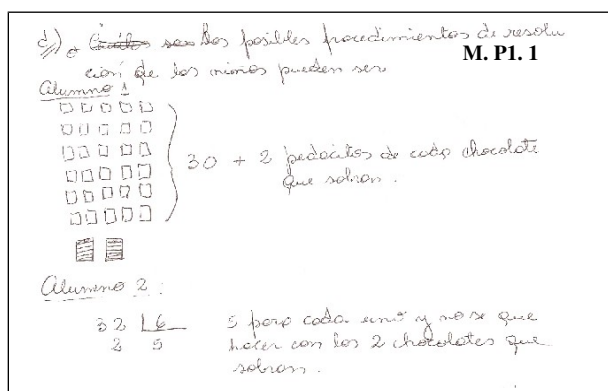 d) Cuáles son los posibles procedimientos de resolu
M. P1. 1
ción de los mismos pueden ser
Alumno 1
30 + 2 pedacitos de cada chocolate
que sobran.
Alumno 2:
32 6 5 para cada uno y no se que
2 5 hacer con los 2 chocolates que
sobran.